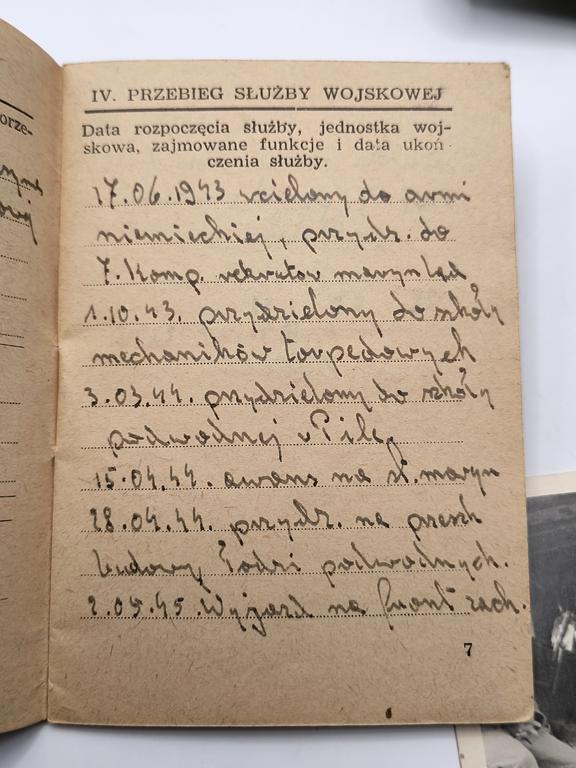 orze-
IV. PRZEBIEG SŁUŻBY WOJSKOWEJ
Data rozpoczęcia służby, jednostka woj-
skowa, zajmowane funkcje i data ukoń-
czenia służby.
17.06.1943 wcielony do armi
niemieckiej, przydz. do
7. Komp. rekrutów maryn
1.10.43. przydzielony do szkoły
mechaników torpedowych
3.03.44. przydzielony do szkoły
podwodnej
15.04.44. awans na st. maryn
28.04.44. przydz. na
budowy łodzi podwodnych.
2.05.45 Wyjazd na front zach.
7